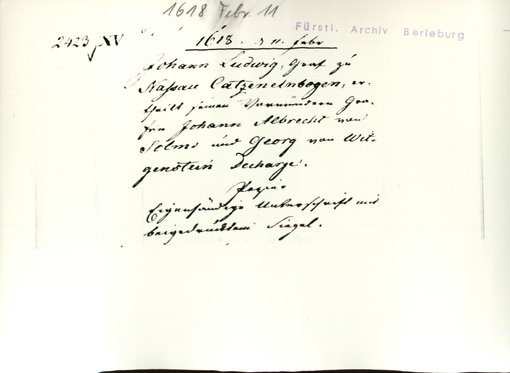 1618 Febr. 11
Fürstl. Archiv Berleburg
2423 NV
1618. d 11. Febr
Johann Ludwig, Graf zu
Nassau Catzenelnbogen, er-
theilt seinen Vormündern Gra-
fen Johann Albrecht von
Solms und Georg von Wit-
genstein Decharge.
Papier
Eigenhändige Unterschrift mit
beigedrücktem Siegel.